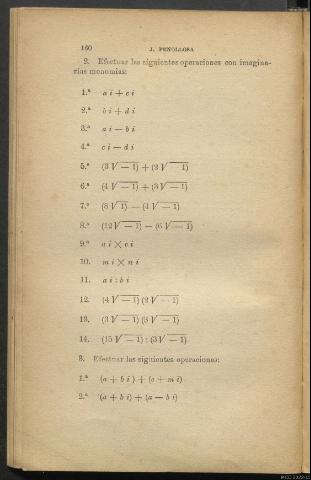 160 J. PENOLLOSA
2. Efectuar las siguientes operaciones con imagina-
rias monomias:
1.ª a i + c i
2.ª b i + d i
3.ª a i — b i
4.ª c i — d i
5.ª (3 √ — 1) + (2 √ — 1)
6.ª (4 √ — 1) + (3 √ — 1)
7.ª (8 √ 1) — (4 √ — 1)
8.ª (12 √ — 1) — (6 √ — 1)
9.ª a i × c i
10. m i × n i
11. a i : b i
12. (4 √ — 1) (2 √ — 1)
13. (3 √ — 1) (3 √ — 1)
14. (15 √ — 1) : (3 √ — 1)
3. Efectuar las siguientes operaciones:
1.ª (a + b i) + (c + m i)
2.ª (a + b i) + (a — b i)